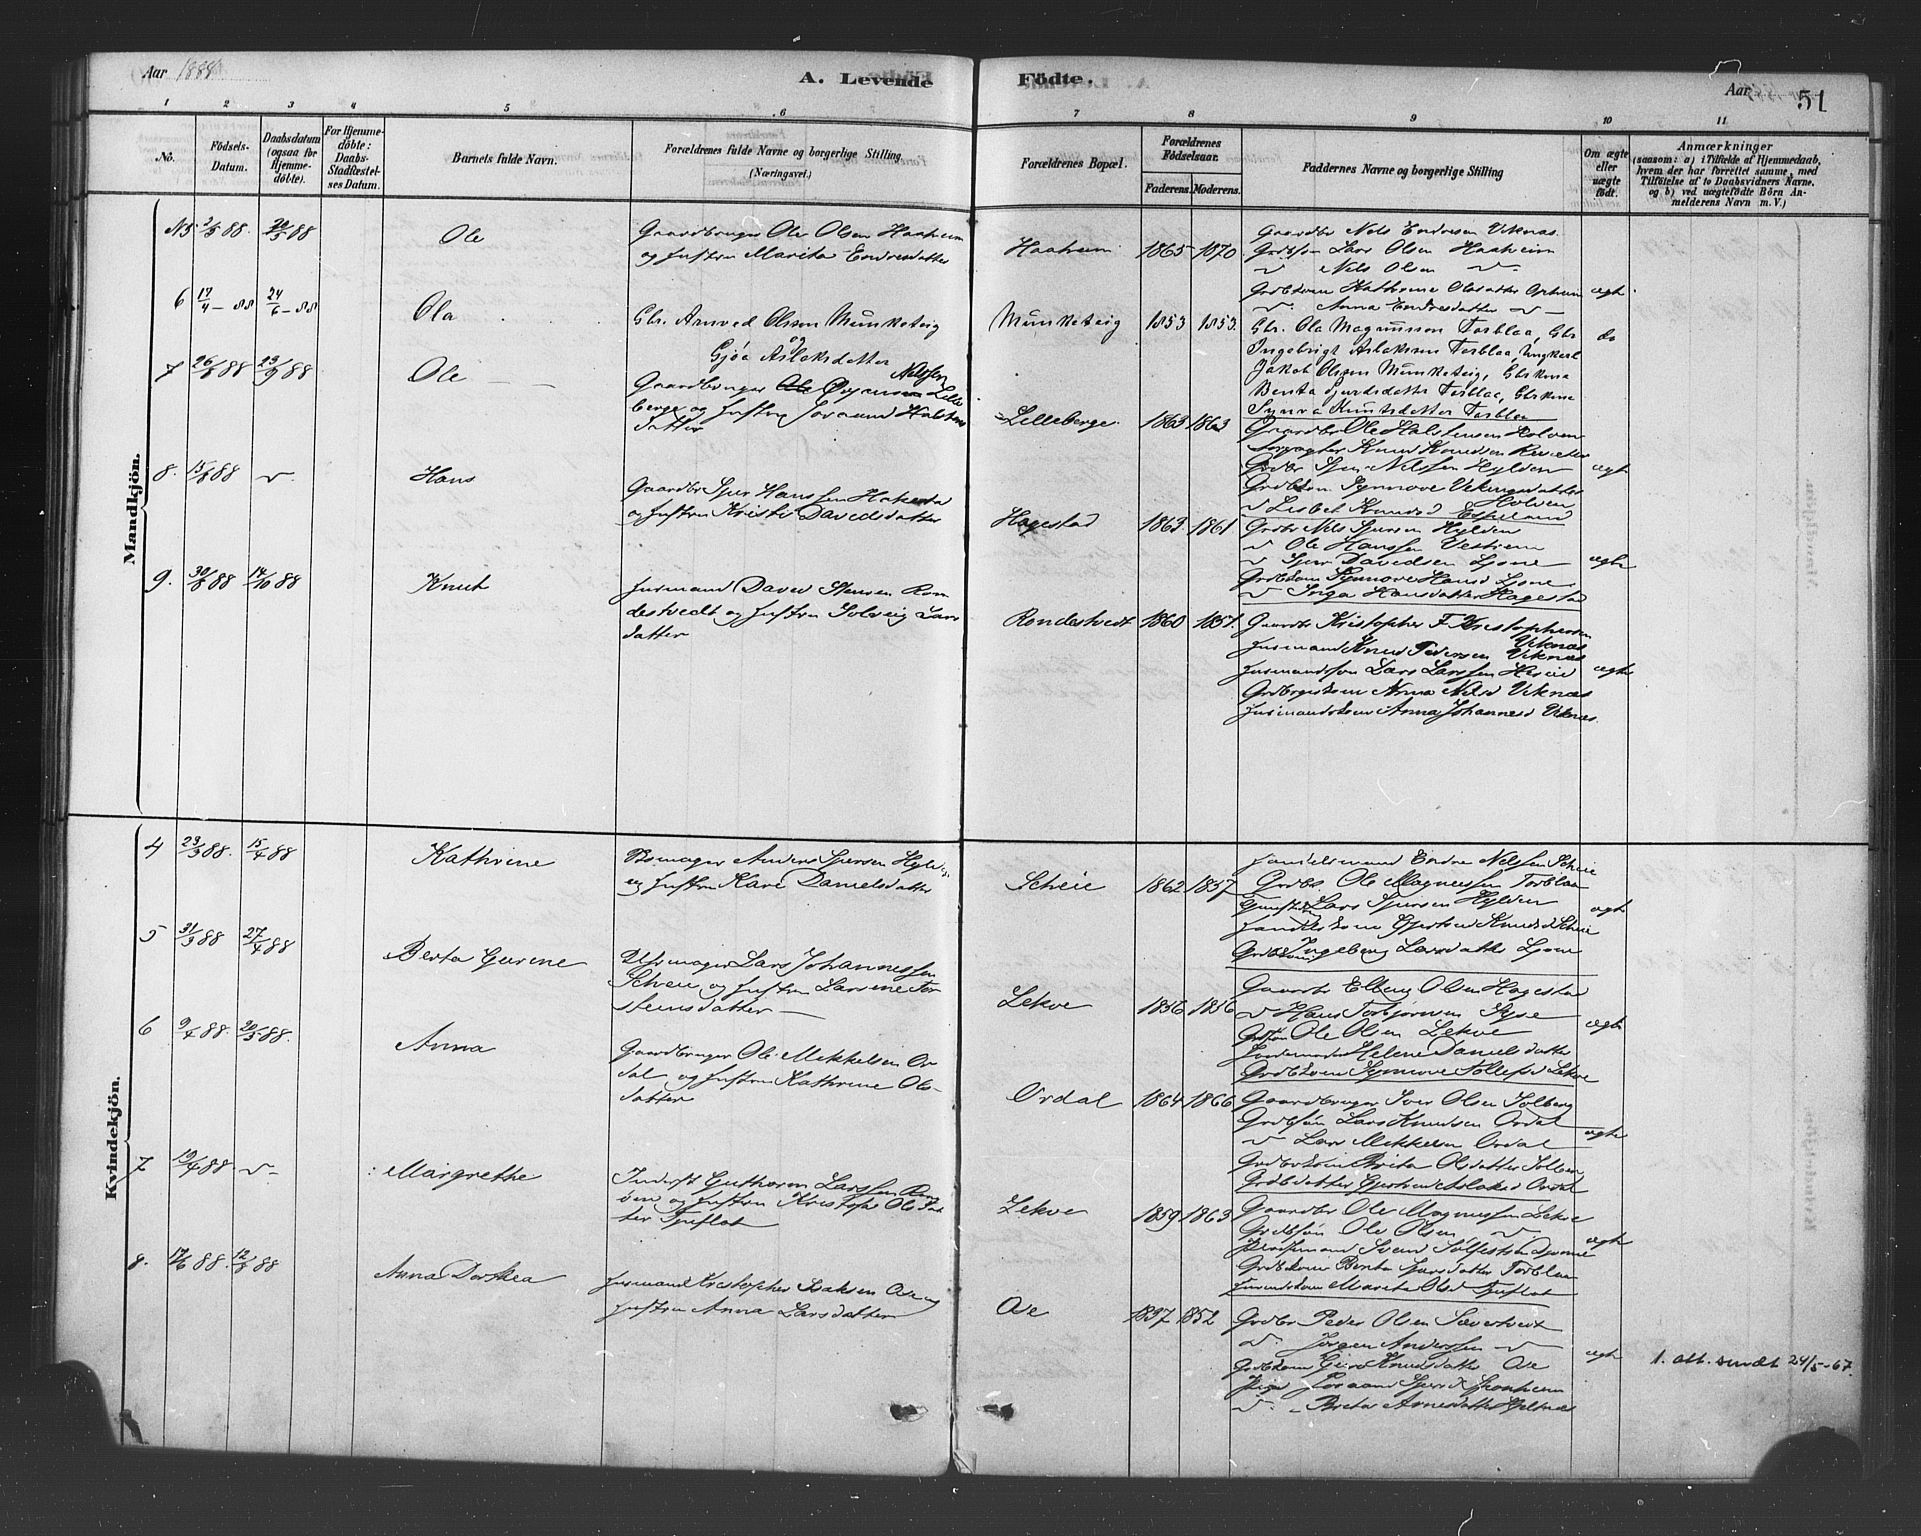 Aar 1888
A. Levende
Födte.
Aar
51
1 2 3 4 5 6 7 8 9 10 11
No.
Födsels-
Datum.
Daabsdatum
(ogsaa for
Hjemme-
döbte).
For Hjemme-
döbte:
Daabs-
Stadfæstel-
ses Datum.
Barnets fulde Navn.
Forældrenes fulde Navne og borgerlige Stilling
(Næringsvei.)
Forældrenes Bopæl.
Forældrenes
Födselsaar.
Faderens. Moderens.
Faddernes Navne og borgerlige Stilling
Om ægte
eller
uægte
födt.
Anmærkninger
(saasom: a) i Tilfælde af Hjemmedaab,
hvem der har forrettet samme, med
Tilföielse af to Daabsvidners Navne,
og b) ved uægtefödte Börn An-
melderens Navn m. V.)
Mandkjön.
N5 2/3 88. 20/5 88
Ole
Gaardbruger Ole Olsen Haaheim
og Hustru Marita Endresdatter
Haaheim 1865 1870
Gaardbr Nels Endresen Viknes
Grdbsøn Lars Olsen Haaheim
v Nils Olsen v
Grdbkone Kathrine Olsdatter Opheim
v Anna Endresdatter v
ægte
6 17/4 - 88 24/6 - 88
Ola
Gbr. Amved Olsson Munketeig
og
Gjøa Aslaksdatter
Munketeig 1853 1853.
Gbr. Ola Magnusson Torblaa, Gbr
Ingebrigt Aslaksson Torblaa, Ungkarl
Jakob Olsson Munketeig, Gbrkona
Brita Sjurdsdatter Torblaa, Gbrkona
Synva Knutsdatter Torblaa
do
7 26/8 88 23/9 88
Ole
Nilssen
Gaardbruger Ole Lille
berge og Hustru Joraand Halstens
datter
Lilleberge. 1863 1863
Gaardbr Ole Halstensen Holven
Knud Knudsen
Grdbr Sjur Nilssen Hylden
Grdbkone Synnove Vikingsdatter
Holven
v Lisbet Knudsd Espeland
ægte
8. 15/8 88 v
Hans
Gaardbr Sjur Hanssen Hakesta
og Hustru Kristi Davidsdatter
Hagestad 1863 1861
Grdbr Nils Sjursen Hylden
v Ole Hanssen Vestrem
v Sjur Davidsen Ljone
Grdbkone Synnove Hansd Ljone
v Inga Hansdatter Hagestad
ægte
9. 30/8 88 14/10 88
Knut
Husmand David Stensen Ron
destvedt og Hustru Solveig Lars
datter
Rondestvedt 1860 1857.
Gaardbr Kristopher F Kristophersen
Viknes
Husmand Knud Pedersen Viknes
Husmandssøn Lars Larssen Heieie
Grdbrgeskone Anna Nelsd Viknes
Husmandskone Anna Johannesd Viknes.
ægte
Kvindekjön.
4 23/3 88. 15/4 88
Kathrine
Anders Sjursen Hylde
og Hustru Kari Danielsdatter
Scheie 1862 1857
Handelsmand Endre Nelssen Scheie
Grdbr. Ole Magnussen Torblaa
Lars Sjursen Hylden
Handelskone Gjertru Knudsd Scheie
Grdbkone Ingeborg Larsdatter Ljone
ægte
5 31/3 88 27/4 88
Berta Gurine
Uhrmager Lars Johannessen
Scheie og Hustru Larsine Tor
steinsdatter
Lekve 1856 1856
Gaardbr Elling Olsen Hagestad
v Hans Torbjørnsen Syse
Grdsøn Ole Olsen Lekve
Jordemoder Helene Danielsdatter
Grdbkone Synnove Tollefsd Lekve
ægte
6 9/4 88. 20/5 88.
Anna
Gaardbruger Ole Mikkelsen Or
dal og Hustru Kathrine Ols-
datter
Ordal 1864 1866
Gaardbruger Iver Olsen Solberg
Grdbsøn Lars Knudsen Ordal
v Lars Mikkelsen Ordal
Grdbrkone Brita Olsdatter
Grdbdatter Gjertru Aslaksd Ordal
ægte
7 19/4 88 v
Margrethe
Inderst Guthorm Larssen
og Hustru Kristofa Ols dat
ter Tjuflot
Lekve 1859 1863
Gaardbr Ole Magnussen Lekve
Grdbsøn Ole Olsen v
Svend Solfestsen
Grdbkone Brita Larsdatter Torblaa
Husmdskone Marita Olsd Tjuflot
ægte
8. 17/6 88. 12/8 88
Anna Dorthea
Husmand Kristopher Isaksen Ose og
Hustru Anna Larsdatter
Ose 1837 1852
Grdbr Peder Olsen Sævertveit
v. Jørgen Anderssen v
Grdbkone Geiro Knudsdatter Ose
Pige Joraand Sjursd Spaanheim
v. Brita Arnesdatter Hjeltnes
ægte
1. att. sendt 24/5-67.